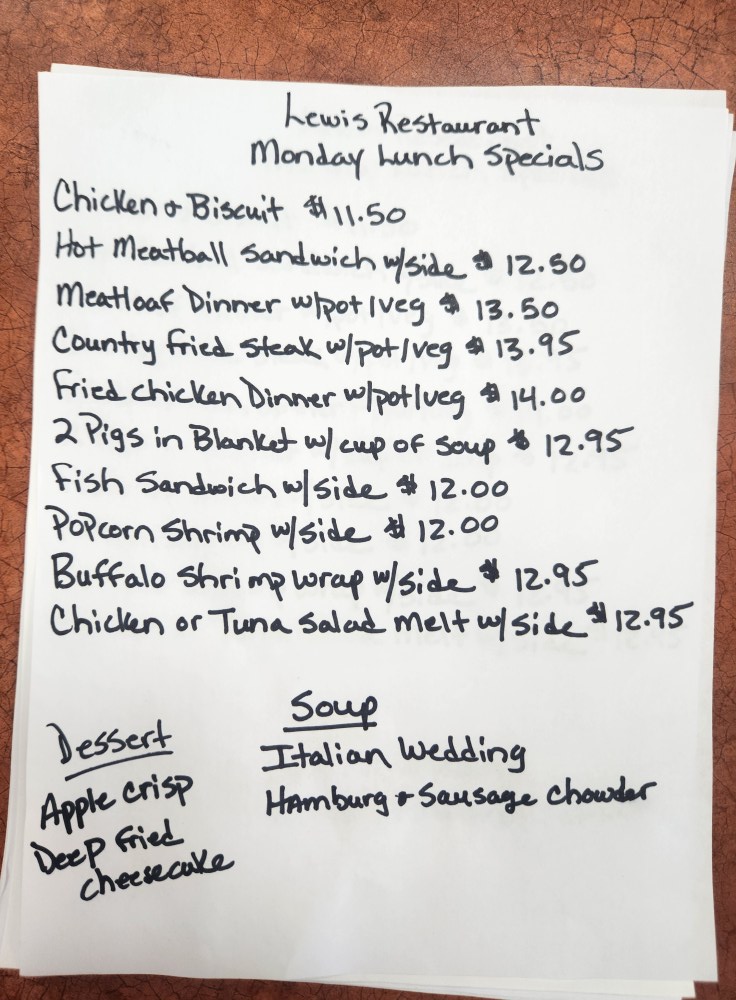 Lewis Restaurant
Monday Lunch Specials
Chicken & Biscuit $11.50
Hot Meatball Sandwich w/side $ 12.50
Meatloaf Dinner w/pot/veg $ 13.50
Country Fried Steak w/pot/veg $ 13.95
Fried Chicken Dinner w/pot/veg $ 14.00
2 Pigs in Blanket w/ cup of soup $ 12.95
Fish Sandwich w/side $ 12.00
Popcorn Shrimp w/side $ 12.00
Buffalo Shrimp wrap w/side $ 12.95
Chicken or Tuna Salad Melt w/side $12.95
Dessert
Apple Crisp
Deep Fried
cheesecake
Soup
Italian Wedding
Hamburg & Sausage Chowder